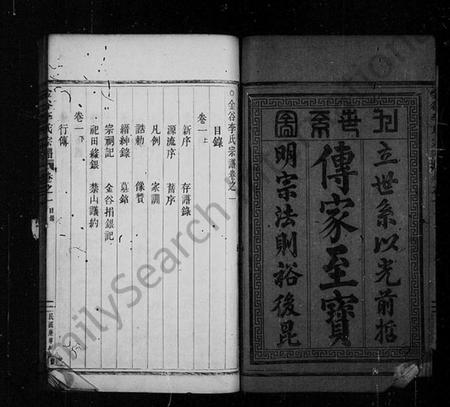 世系
傳家至寶
立世系以光前哲
明宗法則裕後昆
○金谷李氏宗譜卷之一
目錄
卷一上
新序 存譜錄
源流序 舊序
凡例 家訓
誥勅 像贊
縉紳錄 墓銘
宗祠記 金谷捐銀記
祀田緣銀 禁山議約
卷一下
行傳
李氏宗譜 卷之一 目錄
民國庚申
FamilySearch